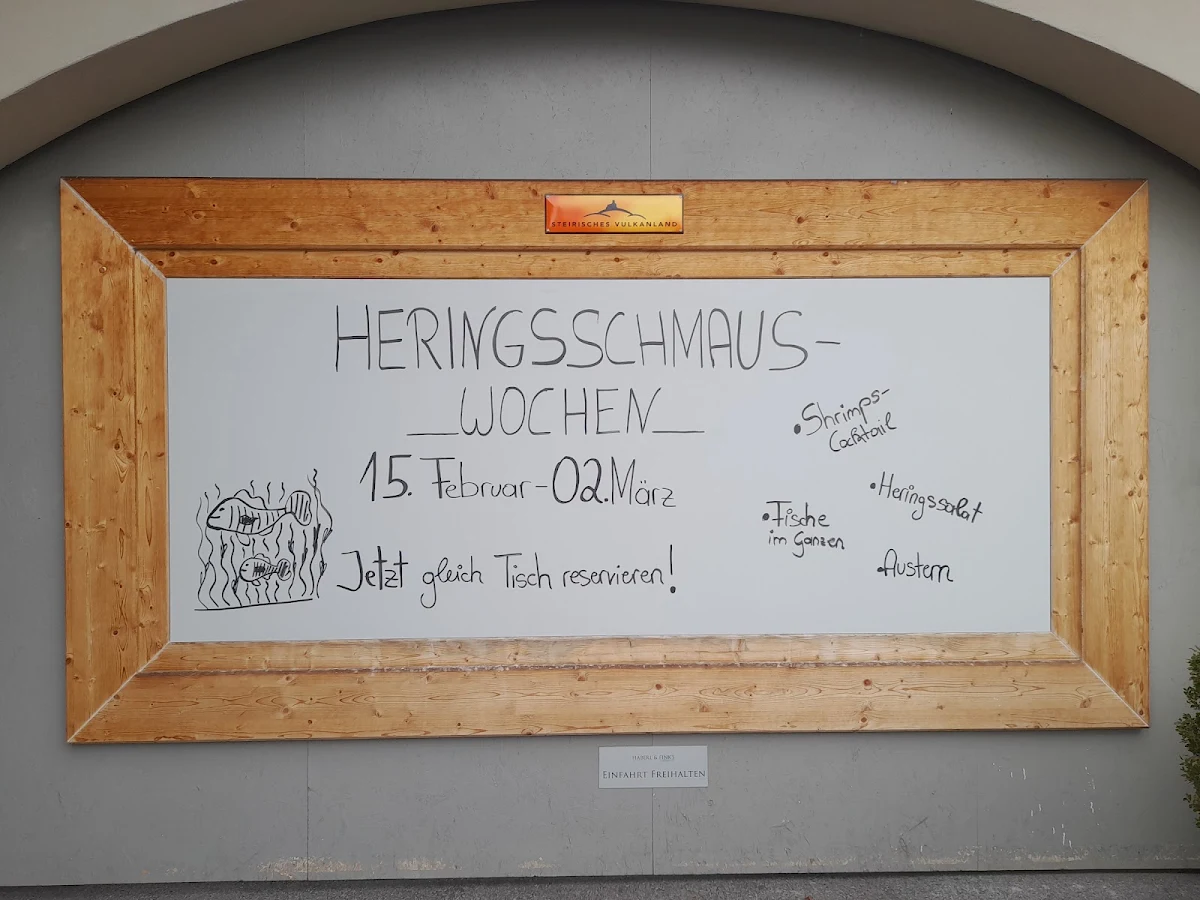 STEIRISCHES VULKANLAND
HERINGSSCHMAUS-
WOCHEN
15. Februar - 02. März
Jetzt gleich Tisch reservieren!
•Shrimps-
Cocktail
•Heringssalat
•Fische
im Ganzen
•Austern
EINFAHRT FREIHALTEN